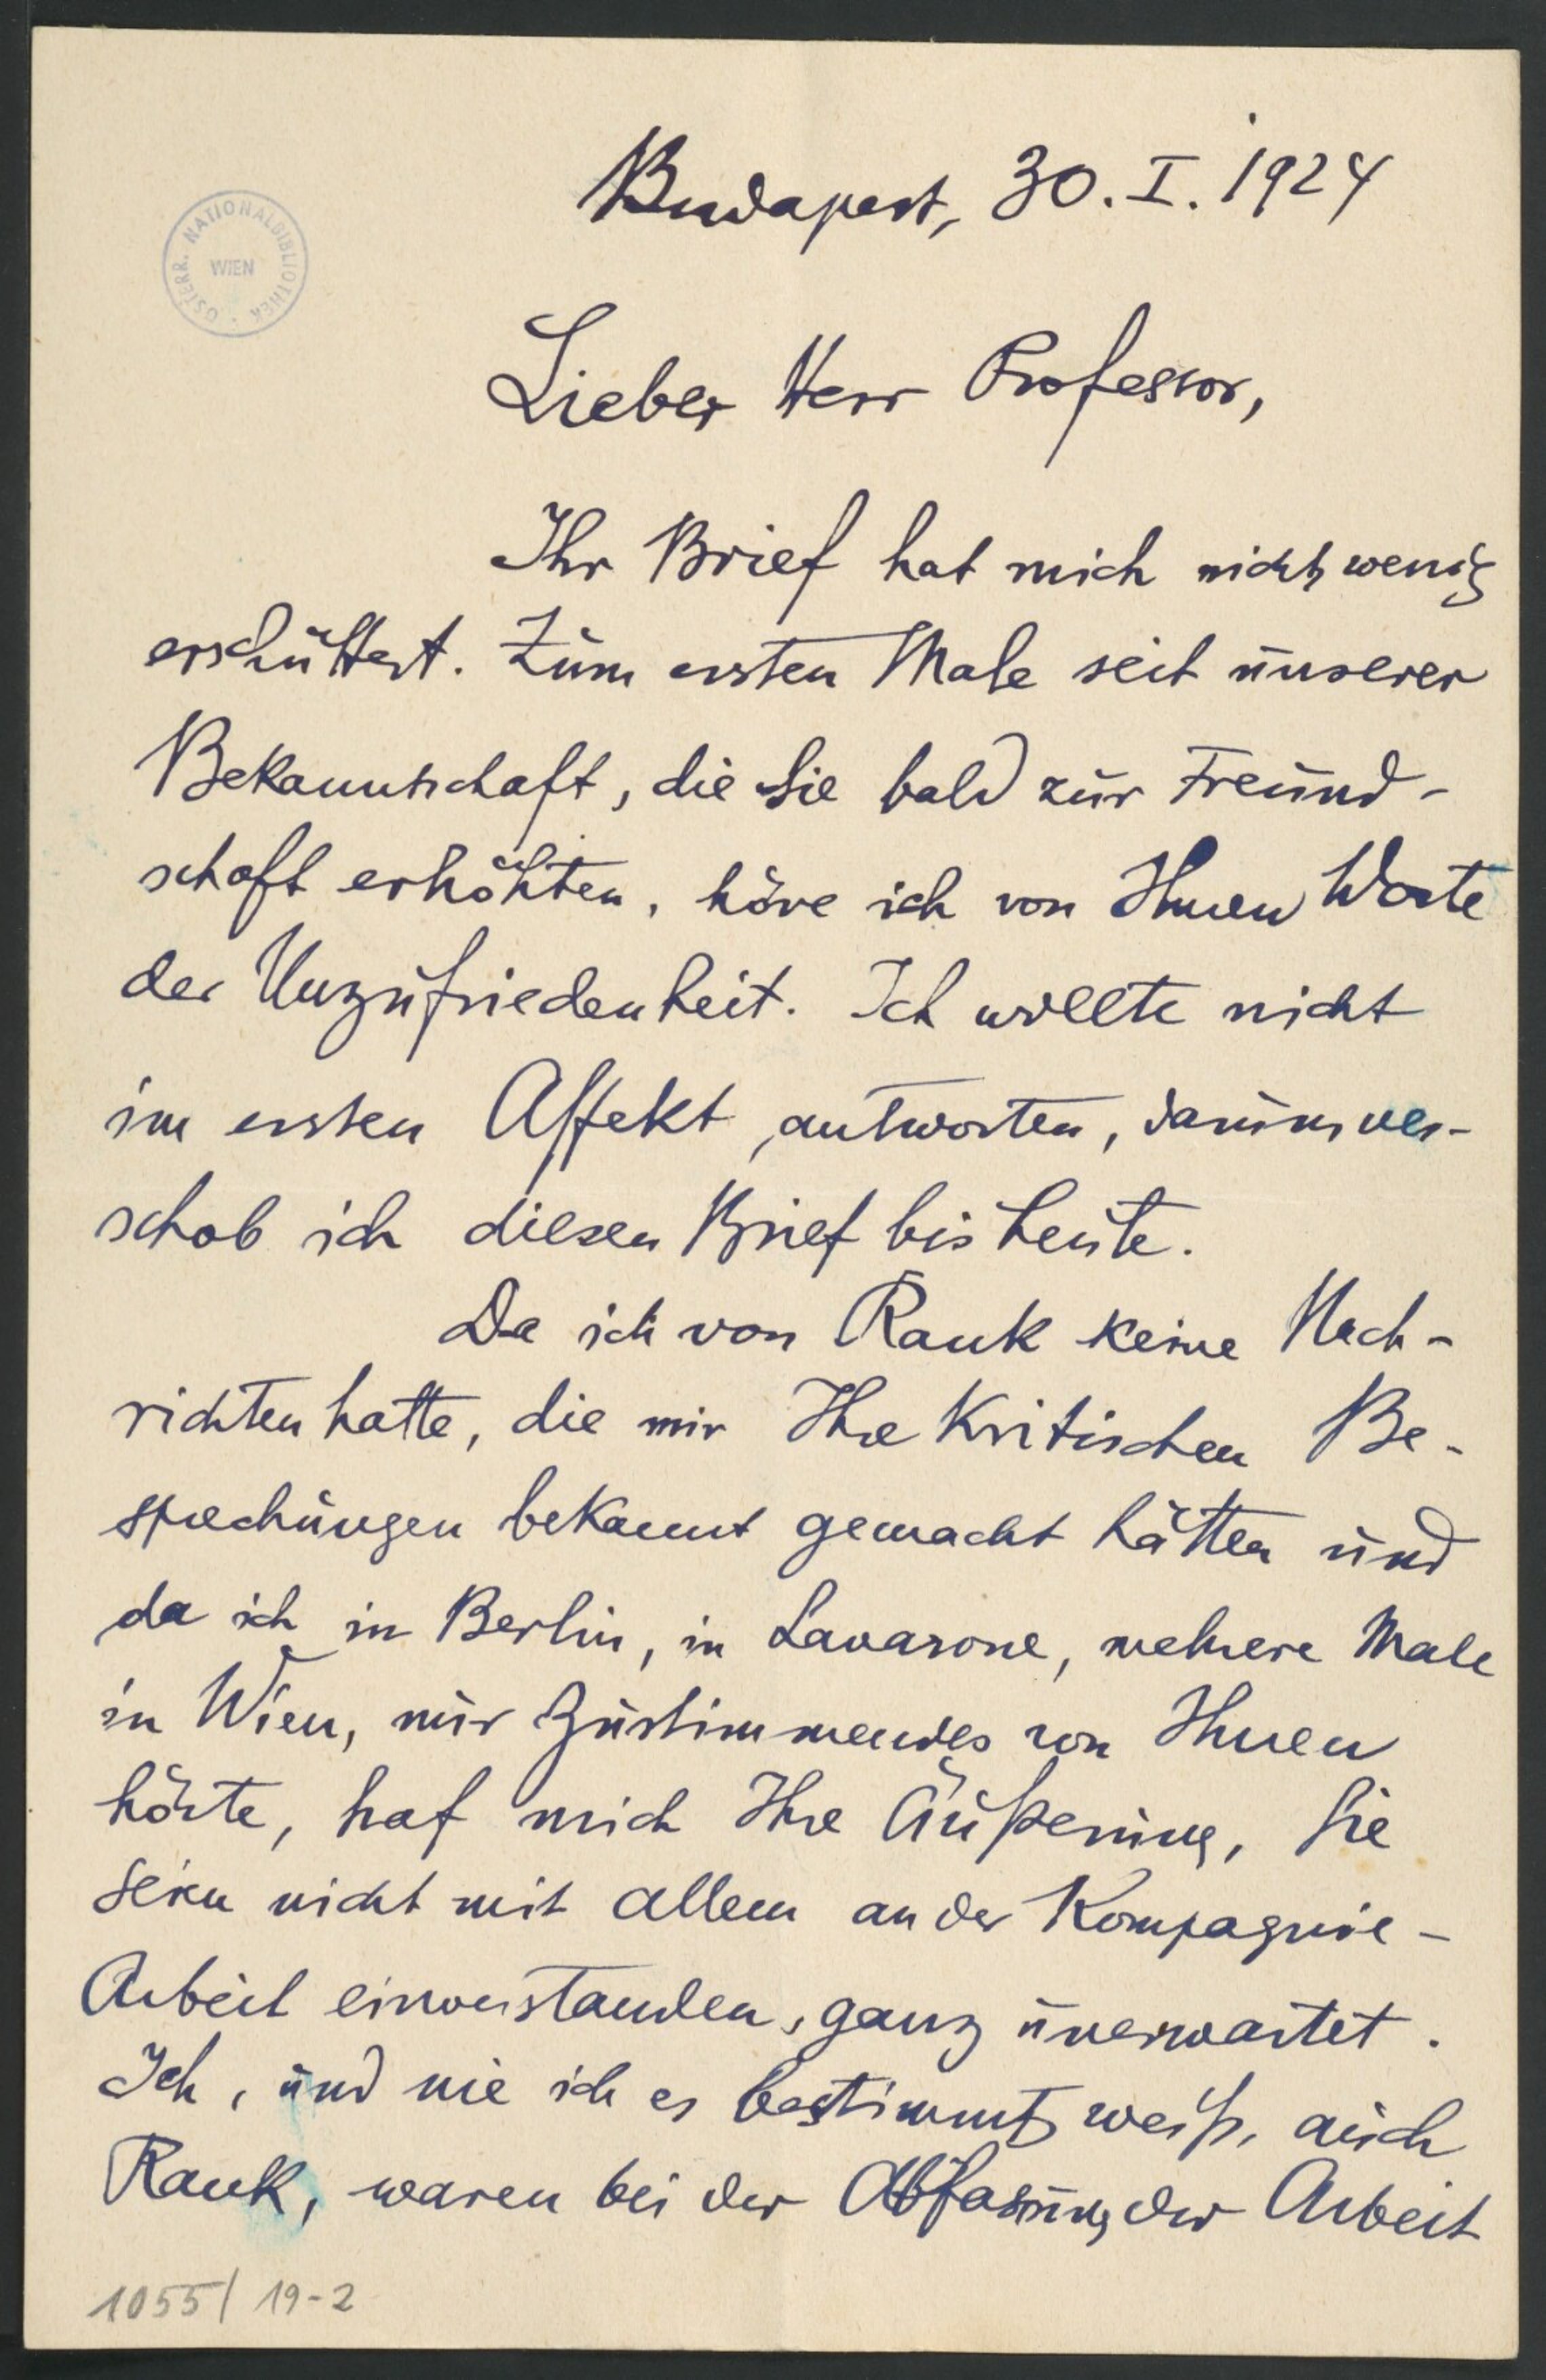 Budapest, 30. I. 1924
ÖSTERR. NATIONALBIBLIOTHEK
WIEN
Lieber Herr Professor,
Ihr Brief hat mich nicht wenig
erschüttert. Zum ersten Male seit unserer
Bekanntschaft, die Sie bald zur Freund-
schaft erhöhten, höre ich von Ihnen Worte
der Unzufriedenheit. Ich wollte nicht
im ersten Affekt antworten, darum ver-
schob ich diesen Brief bis heute.
Da ich von Rank keine Nach-
richten hatte, die mir Ihre kritischen Be-
sprechungen bekannt gemacht hätten und
da ich in Berlin, in Lavarone, mehrere Male
in Wien, nur Zustimmendes von Ihnen
hörte, traf mich Ihre Äußerung, Sie
seien nicht mit allem an der Kompagnie-
Arbeit einverstanden, ganz unerwartet.
Ich, und wie ich es bestimmt weiß, auch
Rank, waren bei der Abfassung der Arbeit
1055/19-2